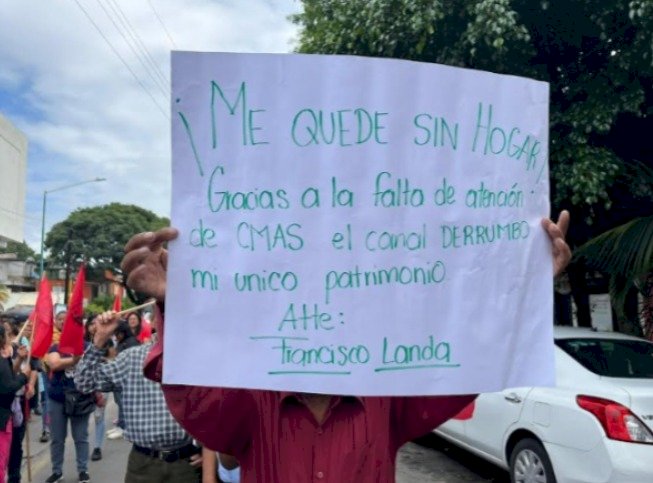 ¡ME QUEDE SIN HOGAR!
Gracias a la falta de atención
de CMAS el canal DERRUMBO
mi unico patrimonio
Atte:
Francisco Landa